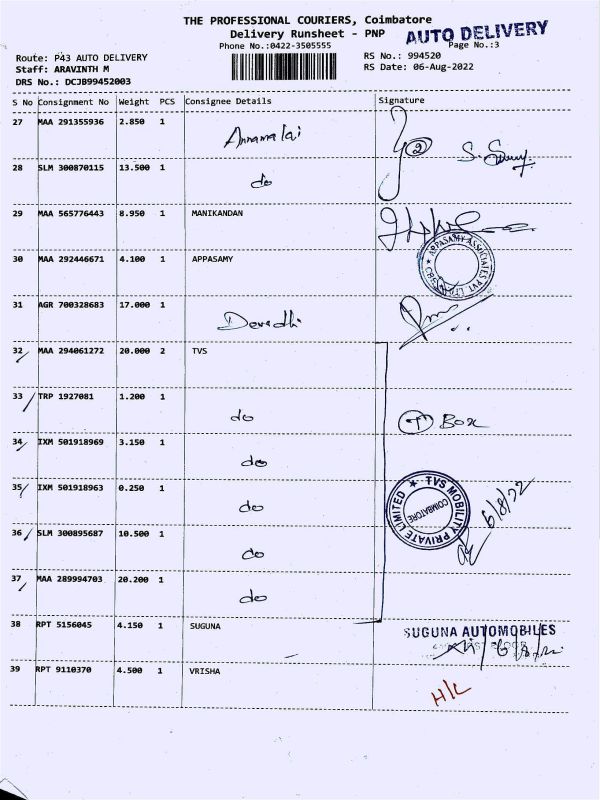 THE PROFESSIONAL COURIERS, Coimbatore
Delivery Runsheet - PNP
AUTO DELIVERY
Phone No.:0422-3505555
Page No.:3
Route: P43 AUTO DELIVERY
RS No.: 994520
Staff: ARAVINTH M
RS Date: 06-Aug-2022
DRS No.: DCJB99452003
S No Consignment No Weight PCS Consignee Details Signature
27 MAA 291355936 2.850 1 Annamalai
2
28 SLM 300870115 13.500 1 do
29 MAA 565776443 8.950 1 MANIKANDAN
30 MAA 292446671 4.100 1 APPASAMY
APPASAMY ASSOCIATES PVT LTD
31 AGR 700328683 17.000 1 Devadhi
32 MAA 294061272 20.000 2 TVS
33 TRP 1927081 1.200 1 do
Box
34 IXM 501918969 3.150 1 do
35 IXM 501918963 0.250 1 do
TVS MOBILITY PRIVATE LIMITED
COIMBATORE
6/8/22
36 SLM 300895687 10.500 1 do
37 MAA 289994703 20.200 1 do
38 RPT 5156045 4.150 1 SUGUNA
SUGUNA AUTOMOBILES
39 RPT 9110370 4.500 1 VRISHA
H/L